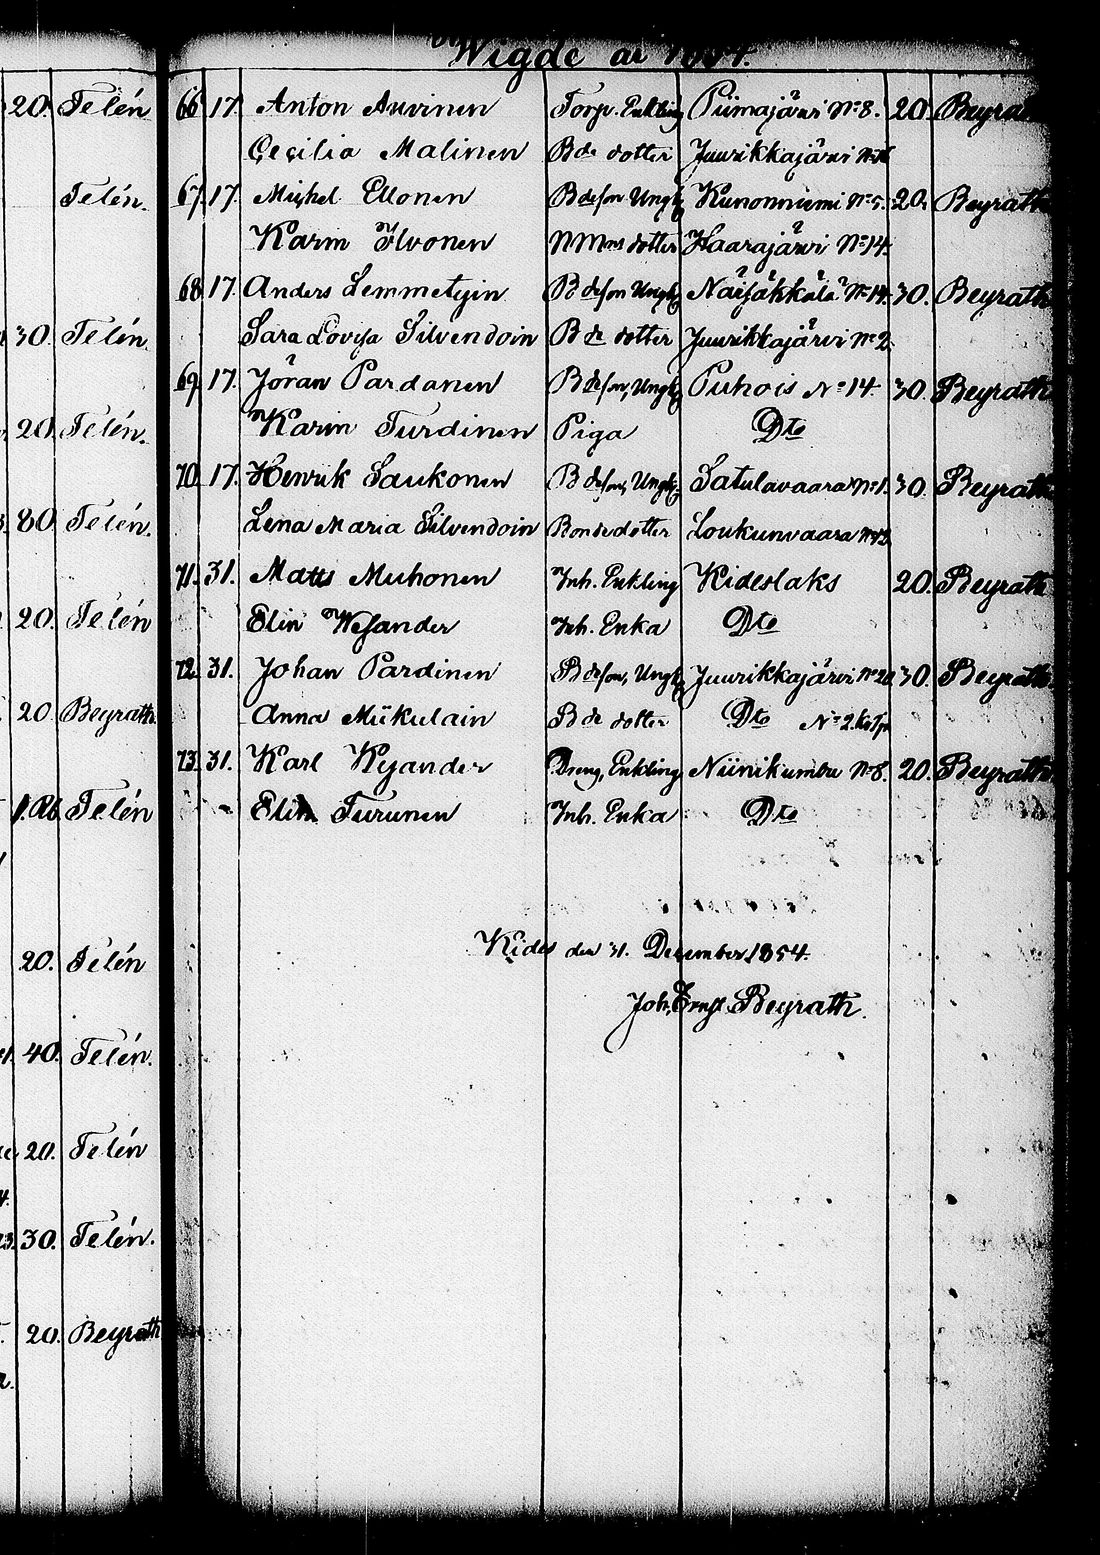 Wigde år 1854.
20. Telén
Telén.
30. Telén.
20. Telén.
80. Telén.
20. Telén
20 Beyrath.
1.Rb. Telén
20. Telén
40. Telén.
20. Telén
30. Telén.
20. Beyrath
66 17. Anton Auvinen Torp. Enkling Piimajärvi No 8. 20. Beyrath
Cecilia Malinen Bde dotter Juurikkajärvi
67. 17. Michel Ellonen Bdeson Ungk. Kunonniemi No 5. 20. Beyrath
Karin Ilvonen dotter Haarajärvi No 14.
68 17. Anders Lemmetyin Bdeson Ungk. Näijäkkälä No 14. 30. Beyrath
Sara Lovisa Silvendoin Bde dotter Juurikkajärvi No 2.
69. 17. Jöran Pardanen Bdeson, Ungk. Puhois No 14. 30. Beyrath
Karin Turdinen Piga Dto
70. 17. Henrik Saukonen Bdeson, Ungk. Satulavaara No 1. 30. Beyrath
Lena Maria Silvendoin Bondedotter Loukunvaara
71. 31. Matts Muhonen Inh. Enkling Kideslaks 20. Beyrath
Elin Wesander Inh. Enka Dto
72. 31. Johan Pardinen Bdeson, Ungk. Juurikkajärvi 30. Beyrath
Anna Miikulain Bde dotter Dto No 2.
73. 31. Karl Kyander Dreng, Enkling Niinikumbu No 8. 20. Beyrath
Elin Turunen Inh. Enka Dto
Kides den 31. December 1854.
Joh. Ernst Beyrath.